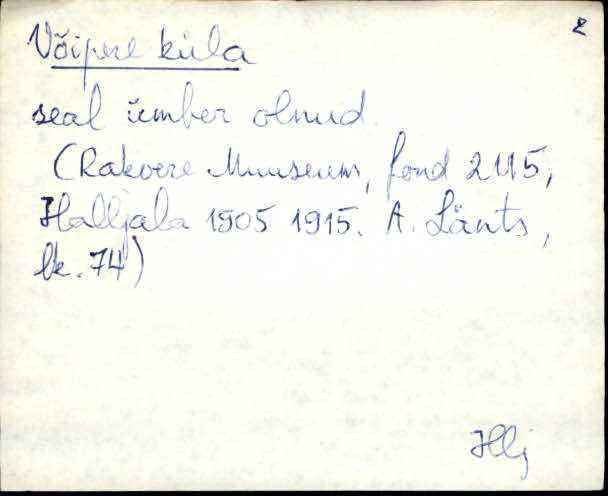 Võipere küla 2
seal ümber olnud.
(Rakvere Muuseum, fond 2115,
Haljala 1905 1915. A. Länts,
lk. 74)
Hlj